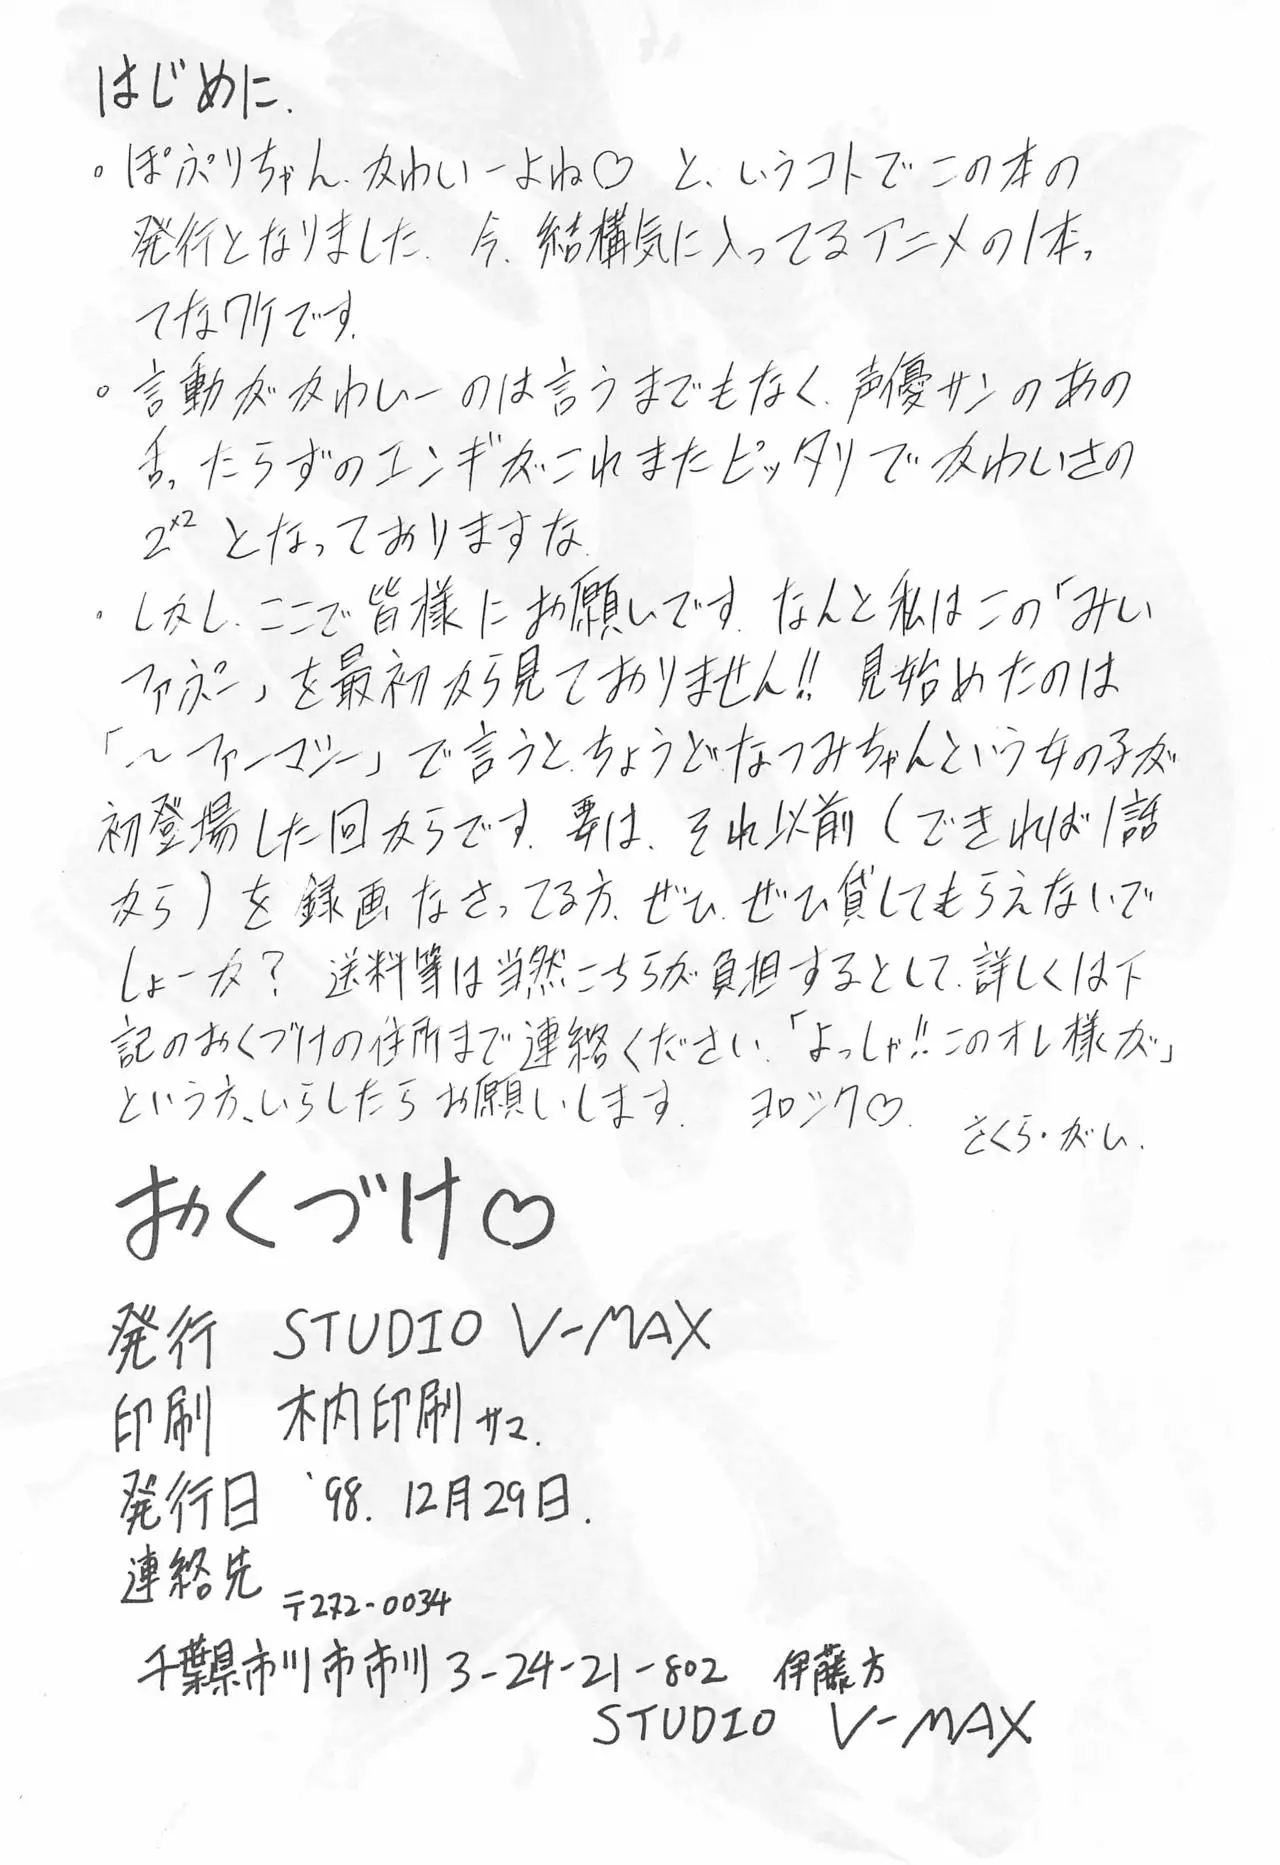 はじめに.
。ぽぷりちゃん、かわいーよね♡ と、いうコトでこの本の
発行となりました. 今、結構気に入ってるアニメの1本、
てなワケです.
。言動がかわいーのは言うまでもなく、声優サンのあの
舌ったらずのエンギがこれまたピッタリでかわいさの
2ˣ² となっておりますな.
・しかし、ここで皆様にお願いです. なんと私はこの「みい
ファぷー」を最初から見ておりません!! 見始めたのは
「〜ファーマシー」で言うと、ちょうどなつみちゃんという女の子が
初登場した回からです. 要は、それ以前(できれば1話
から)を録画なさってる方、ぜひ、ぜひ貸してもらえないで
しょーか? 送料等は当然こちらが負担するとして、詳しくは下
記のおくづけの住所まで連絡ください.「よっしゃ!!このオレ様が」
という方、いらしたらお願いします. ヨロシク♡.
さくら・がい.
おくづけ♡
発行 STUDIO V-MAX
印刷 木内印刷サマ.
発行日 '98. 12月29日.
連絡先
〒272-0034
千葉県市川市市川3-24-21-802 伊藤方
STUDIO V-MAX